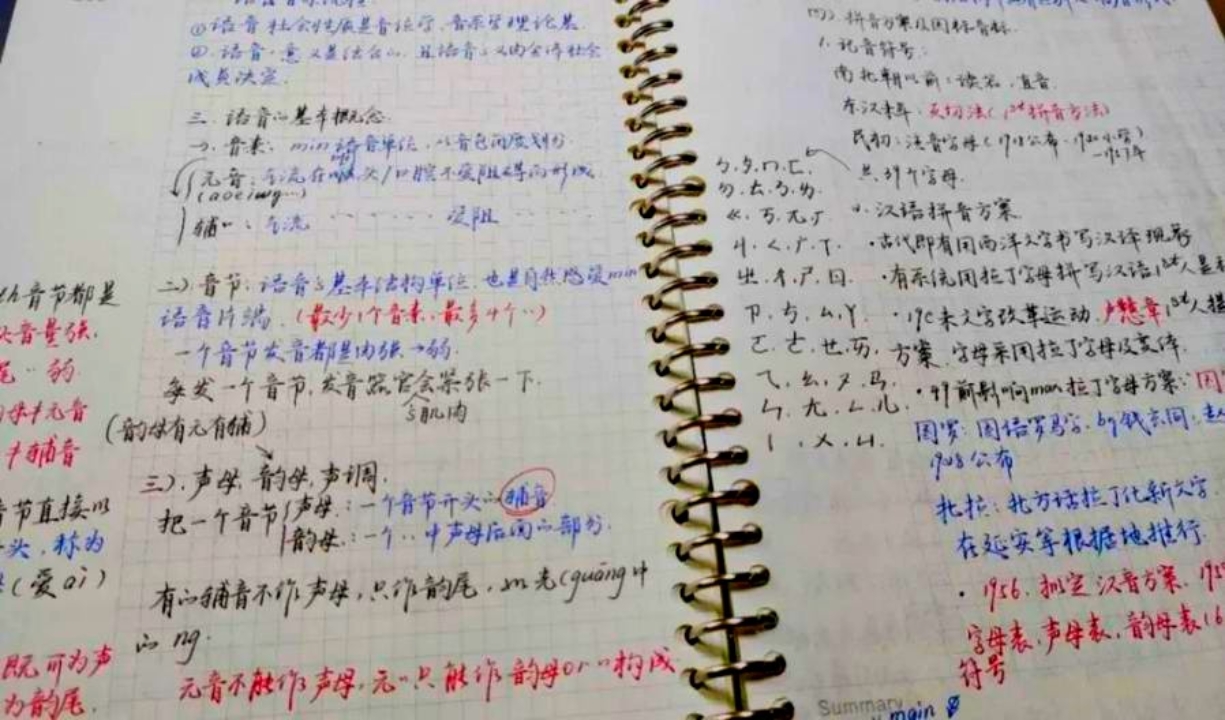 ①语音社会性质是音位学、音系学理论基
②语音·意义是结合的,且语音·义的会得社会
成员决定.
三.语音的基本概念.
一).音素:min语音单位,从音色角度划分.
元音:气流在咽头/口腔不受阻碍而形成.
(aoeiuü…)
辅〃:气流 …… 受阻 ……
二).音节:语音的基本结构单位.也是自然感受min
语音片端.(最少1个音素,最多4个〃)
一个音节发音都是由强→弱.
每发一个音节,发音器官会紧张一下.
的肌肉
(韵母有元有辅)
三).声母,韵母,声调.
把一个音节
声母:一个音节开头的辅音
韵母:一个〃中声母后面的部分.
有的辅音不作声母,只作韵尾,如光(guāng中
的ng.
元音不能作声母,元〃只能作韵母or〃构成
音节都是
头音量强,
尾〃弱
韵母≠元音
≠辅音
音节直接以
头,称为
(爱ài)
既可为声
为韵尾.
拼音方案及国际音标.
1.记音符号:
南北朝以前:读若,直音.
东汉末年:反切法(1st拼音方法)
民初:注音字母(1918公布,1920小学)
-1957年
共39个字母.
ㄅ.ㄆ.ㄇ.ㄈ
ㄉ.ㄊ.ㄋ.ㄌ.
ㄍ.ㄎ.ㄫ
ㄐ.ㄑ.ㄏ.ㄒ.
ㄓ.ㄔ.ㄕ.ㄖ.
ㄗ.ㄘ.ㄙ.ㄚ.
ㄛ.ㄜ.ㄝ.ㄞ.
ㄟ.ㄠ.ㄡ.ㄢ.
ㄣ.ㄤ.ㄥ.ㄦ.
ㄧ.ㄨ.ㄩ.
汉语拼音方案
·古代即有用西洋文字书写汉译现象
·有系统用拉丁字母拼写汉语1st人是
·19C末文字改革运动,卢戆章1st人提
方案,字母采用拉丁字母及变体.
·49前影响max拉丁字母方案:国
国罗:国语罗马字.by钱玄同,赵
1928公布
北拉:北方话拉丁化新文字.
在延安等根据地推行.
·1956.拟定汉音方案,195
字母表,声母表,韵母表(6
符号
Summary
main